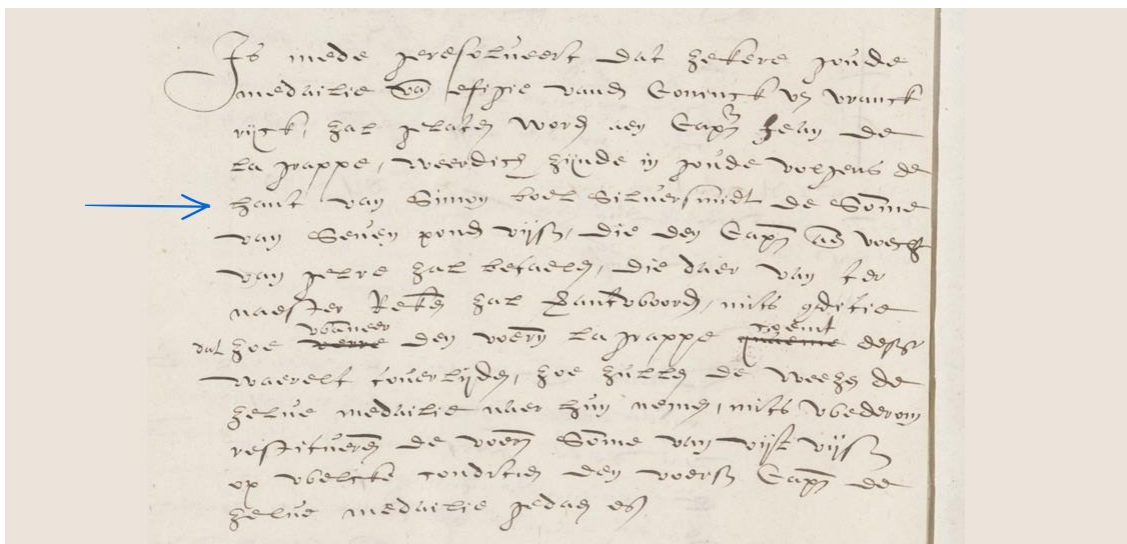 Is mede geresolveert dat zekere goude
medailie va efigie vand Coninck va vranck
rijck, zal gelaten word aen Cap.n Jean de
la grappe, weerdich zijnde in goude volgens de
hant van Simon boel Silversmidt de Some
van Seven pond vijf, die den Cap.n voocht
van gelre zal betaelen, die daer van ter
naester Reke zal verantwoord, mits conditie
dat zoe wanneer den voern la grappe coemt deser
waerelt t'overlijden, zoe zullen de weezen de
zelve medailie naer hun nemen, mits wederom
restitueren de voern Some van vijf
op welcke conditien den voers Cap.n de
zelve medailie gedaen es